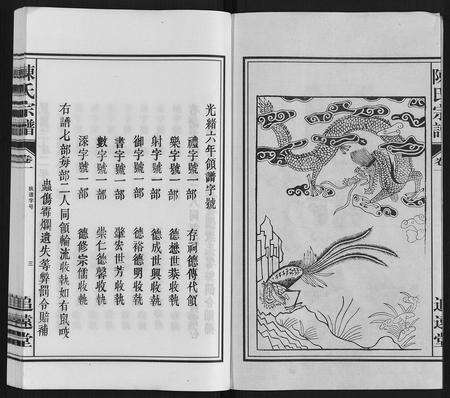 陳氏宗譜
卷一
追遠堂
光緒六年領譜字號
禮字號一部 存祠德傳代領
樂字號一部 德懋世恭收執
射字號一部 德成世興收執
御字號一部 德裕德明收執
書字號一部 肇宏世芳收執
數字號一部 崇仁德馨收執
添字號一部 德修宗儒收執
右譜七部每部二人同領輪流收執如有鼠咬
蟲傷霉爛遺失等弊罰令賠補
陳氏宗譜
卷一
執譜字号
三
追遠堂